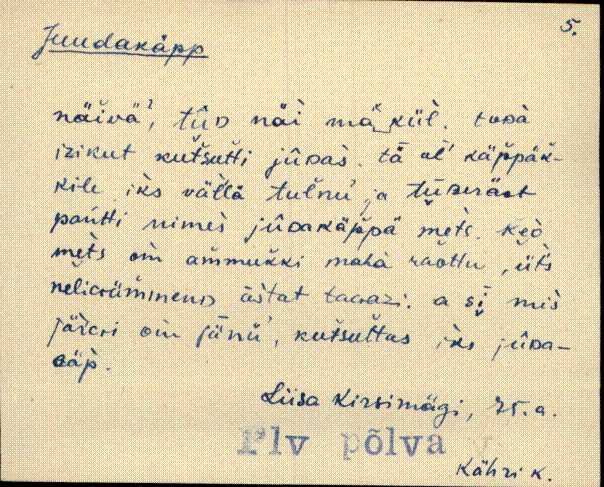 5.
Juudakäpp
näivä', tûᴅ näi mä‿kül̀. tuᴅà
izikut kutsutti jûᴅas̀. tä ol' käppäk-
kile iks vällä tulnu' ja
pańtti nimes̀ jûᴅakäppä mets. keò
mets om ammukki maha raottu, ùts
nelicümmenᴅ āstat tacazi. a sį̀ mis
järcri om jänü', kutsuttas iks jûᴅa-
cäp̀.
Liisa Kirsimägi, 75. a.
Plv põlva
Kähri k.